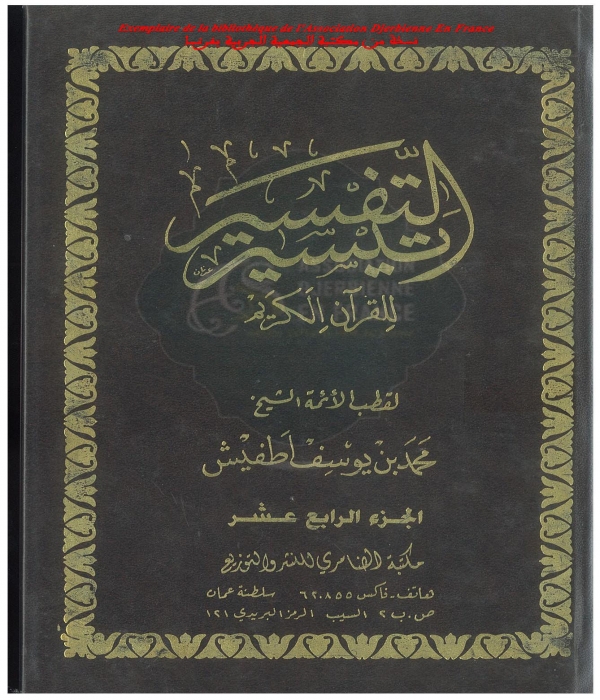 Exemplaire de la bibliothèque de l'Association Djerbienne En France
نسخة من مكتبة الجمعية الجربية بفرنسا
تيسير التّفسير
للقرآن الكريم
لقطب الأئمة الشيخ
محمد بن يوسف اطفيش
الجزء الرابع عشر
مكتبة الضامري للنشر والتوزيع
هاتف - فاكس ٦٢.٨٥٥ سلطنة عمان
ص.ب ٢ السيب الرمز البريدي ١٢١
ASSOCIATION
DJERBIENNE